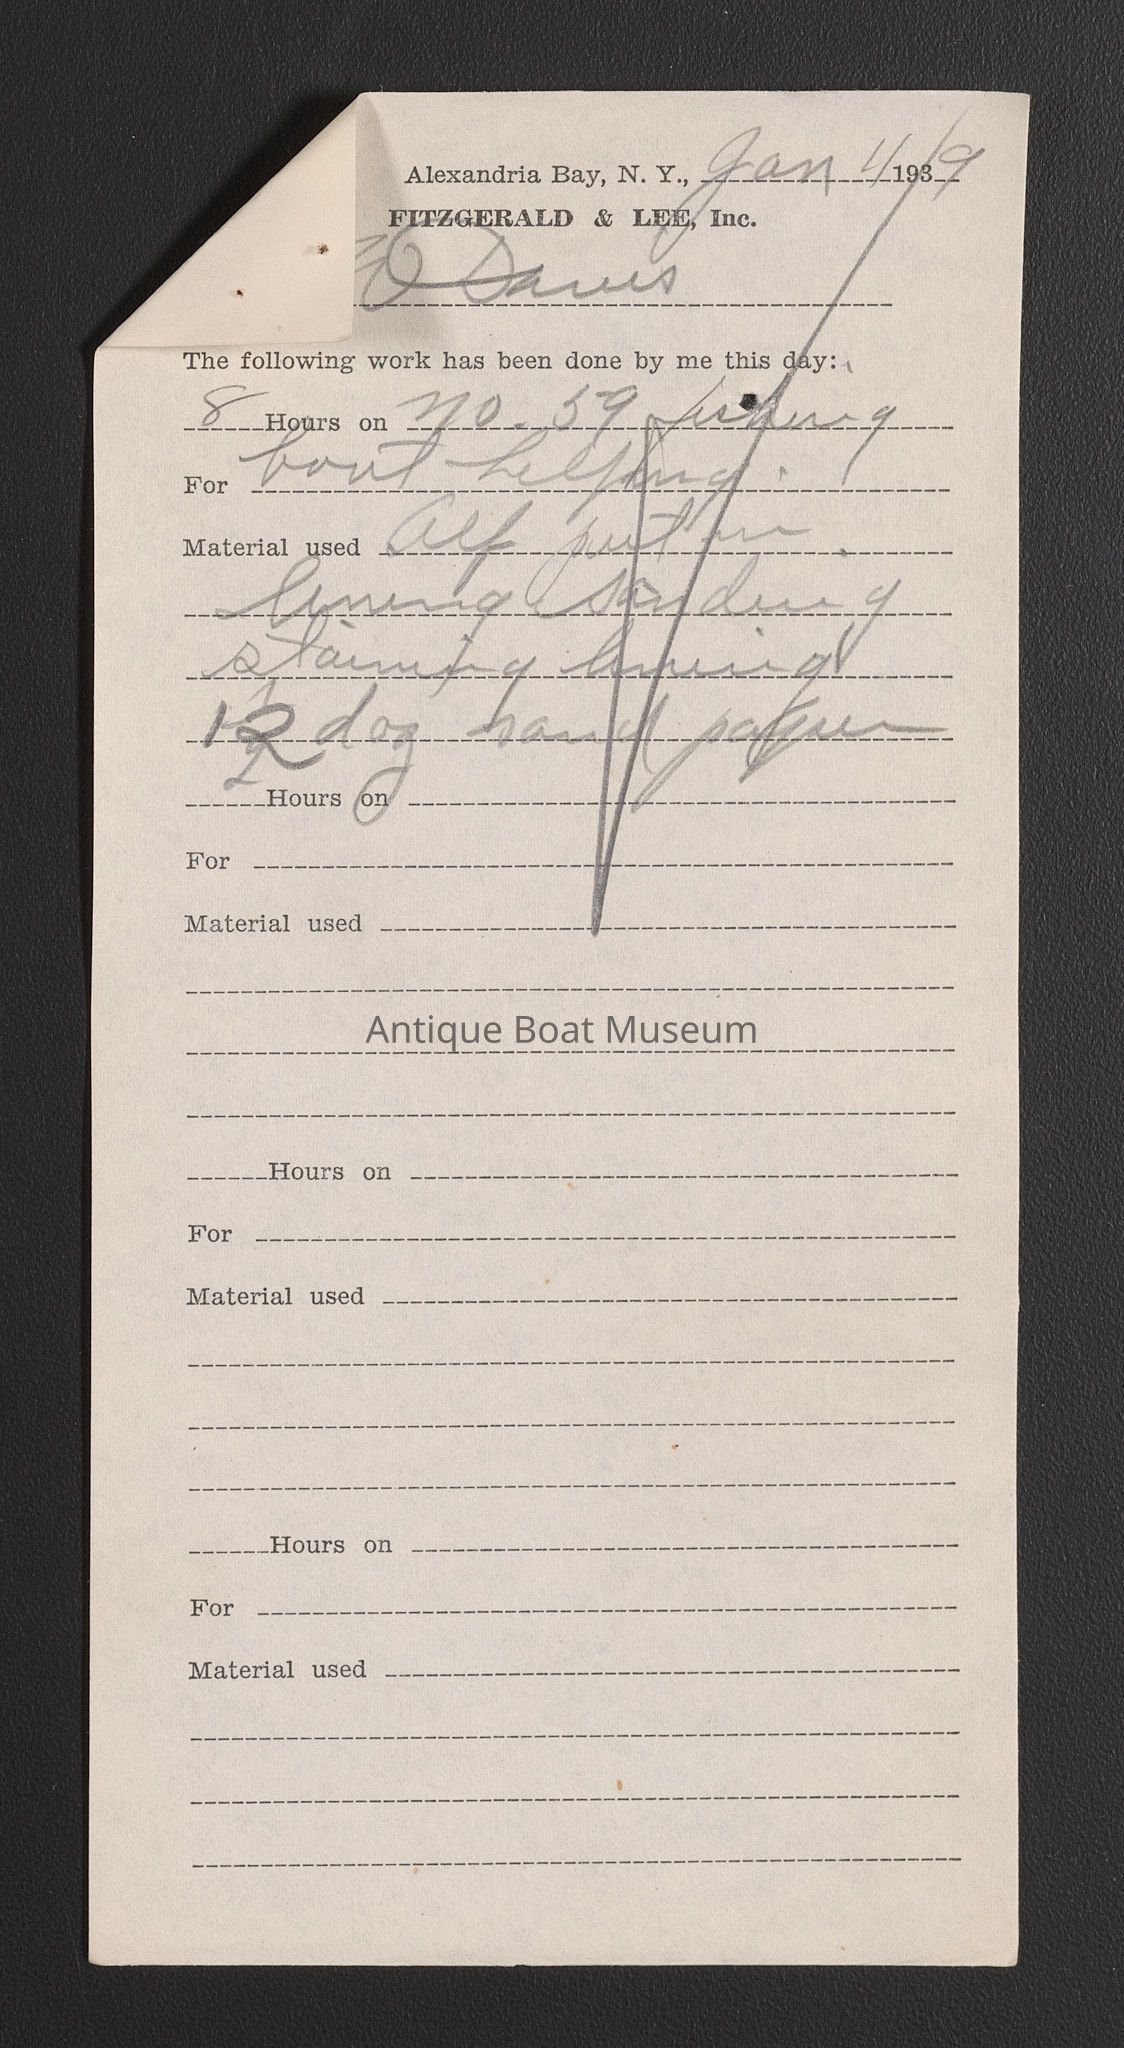 Alexandria Bay, N. Y., Jan 4 1939
FITZGERALD & LEE, Inc.
Davis
The following work has been done by me this day:
8 Hours on no. 59 fishing
For boat helping
Material used Alf put in
lining sanding
staining lining
1/2 doz sand paper
Hours on
For
Material used
Antique Boat Museum
Hours on
For
Material used
Hours on
For
Material used